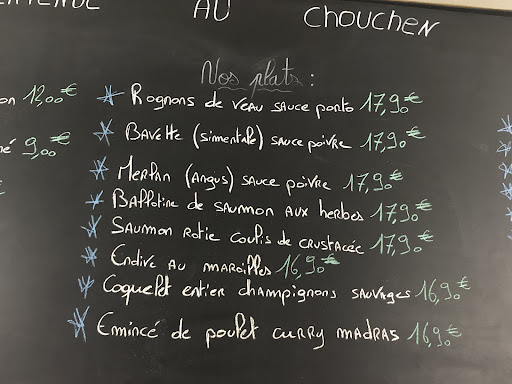 AU CHOUCHEN
Nos plats :
12,00€
9,00€
* Rognons de veau sauce porto 17,90€
* Bavette (simentale) sauce poivre 17,90€
* Merlan (Angus) sauce poivre 17,90€
* Ballotine de saumon aux herbes 17,90€
* Saumon rotie coulis de crustacée 17,90€
* Endive au maroilles 16,90€
* Coquelet entier champignons sauvages 16,90€
* Emincé de poulet curry madras 16,90€